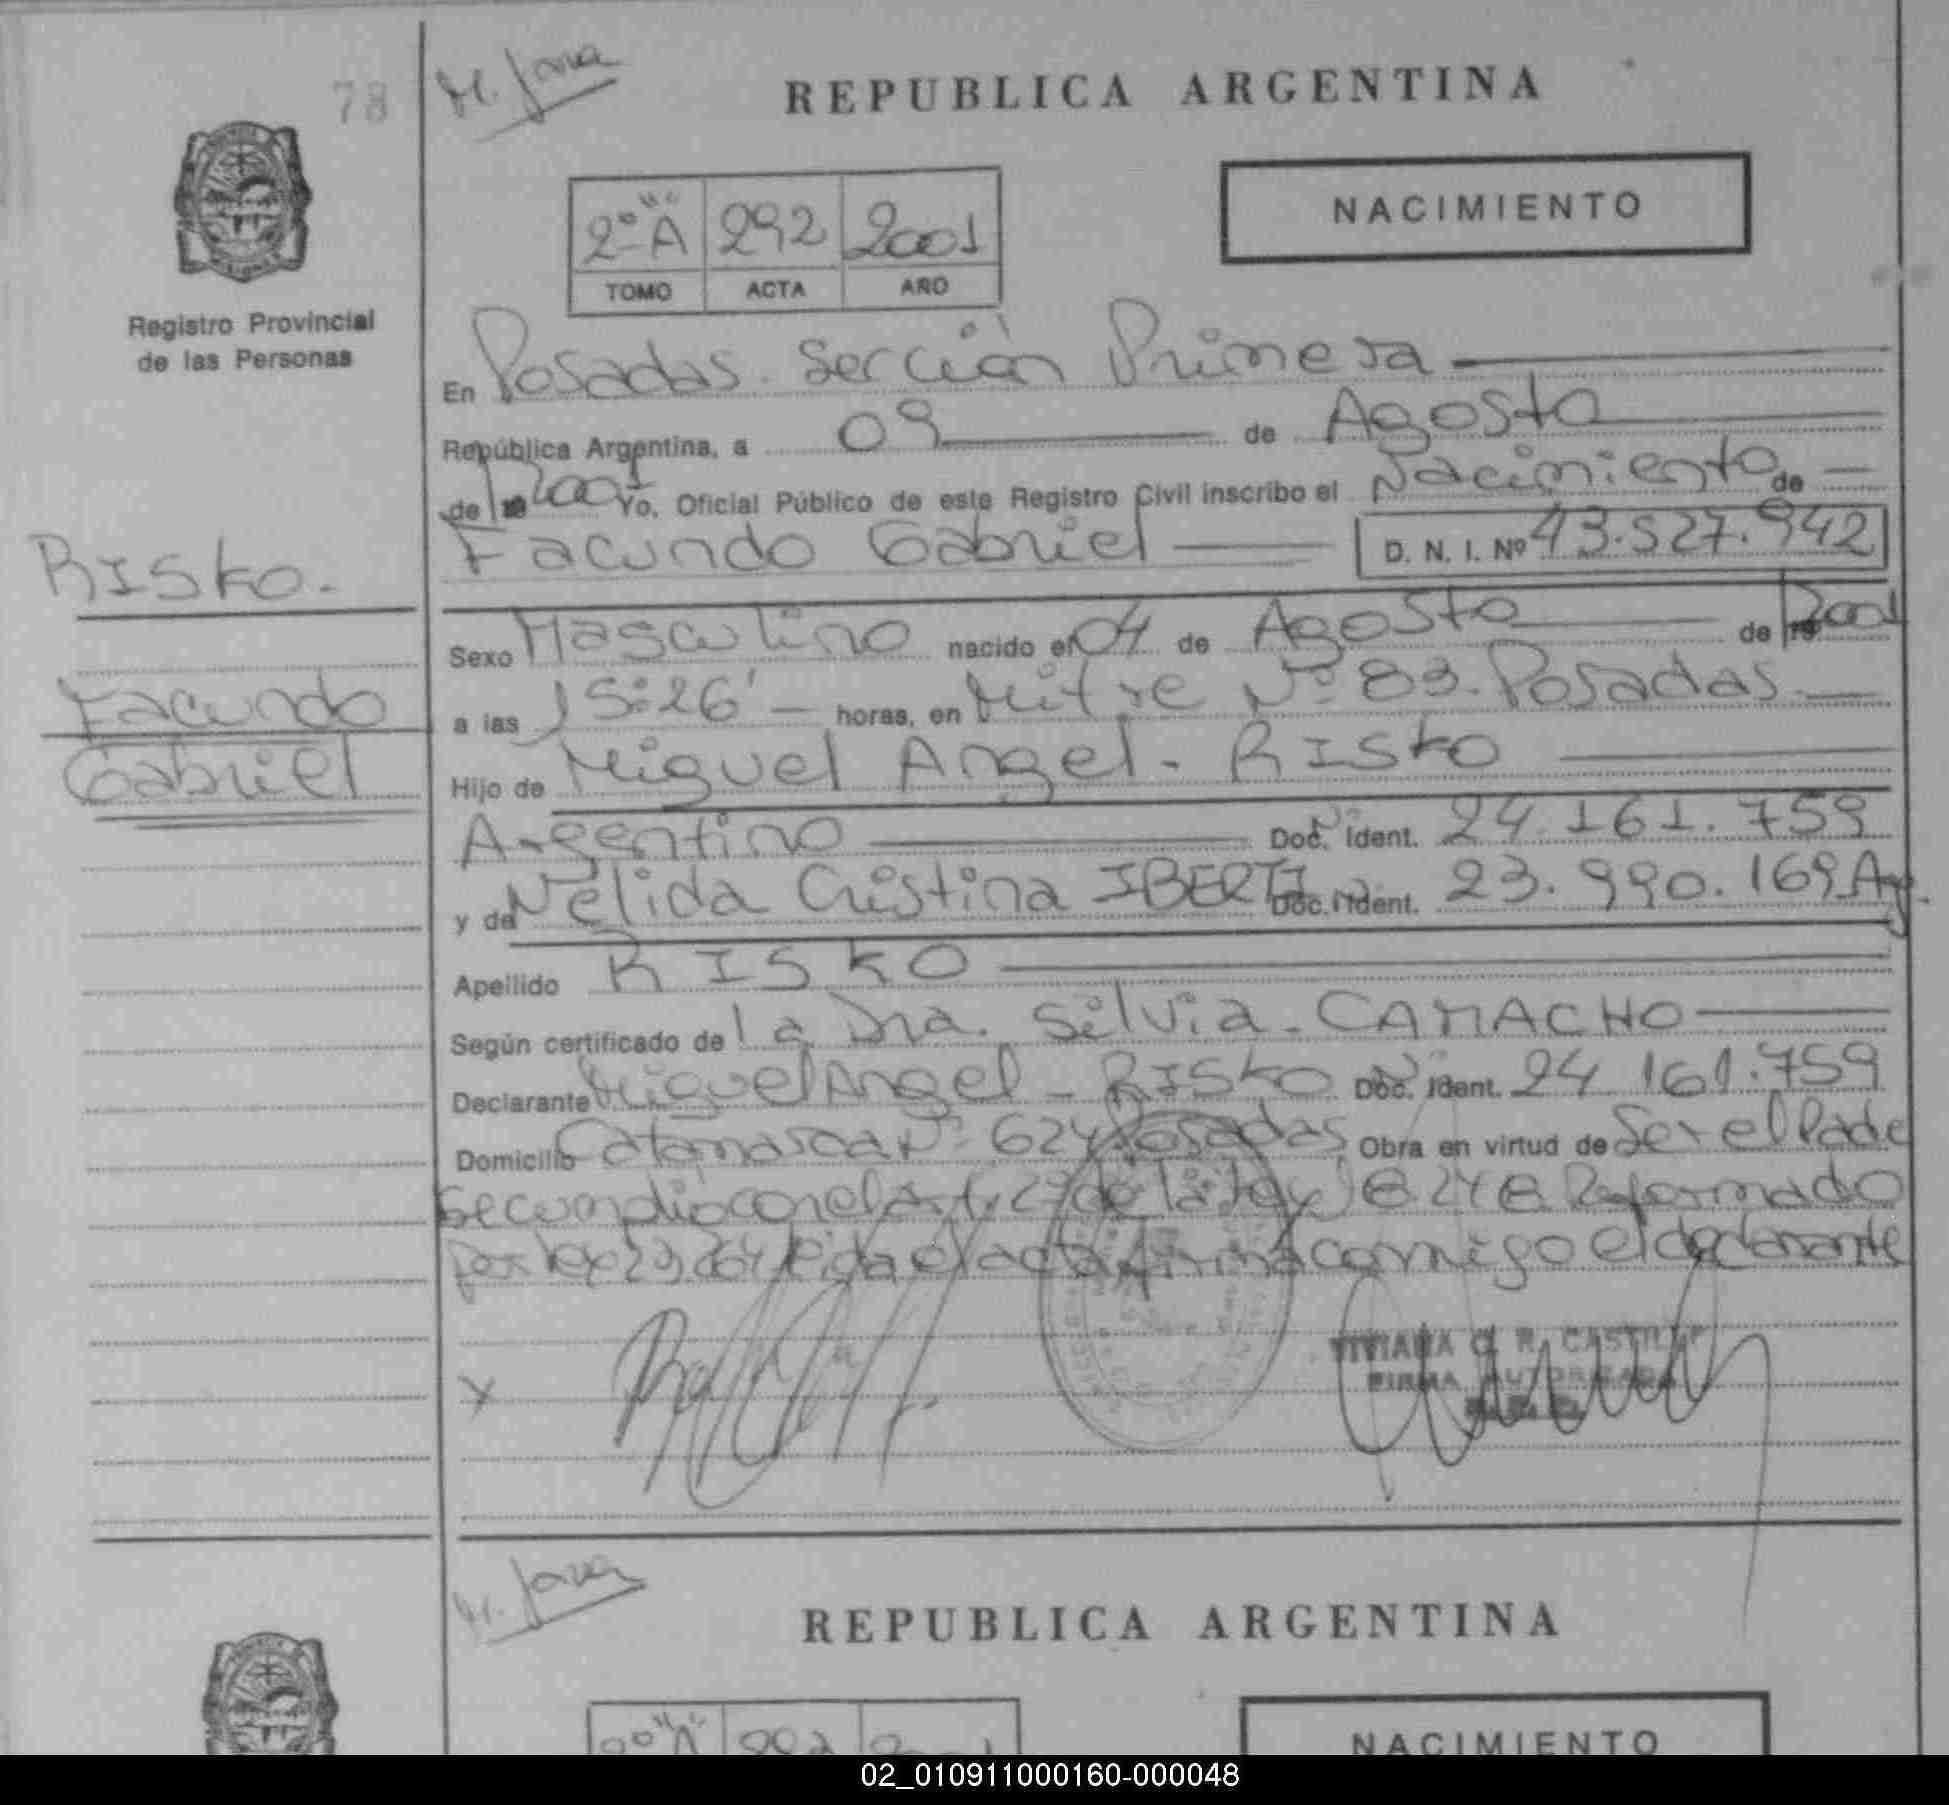 78
REPUBLICA ARGENTINA
NACIMIENTO
2º "A" 292 2001
TOMO ACTA AÑO
Registro Provincial
de las Personas
En Posadas. Sección Primera
República Argentina, a 09 de Agosto
de 2001 Yo, Oficial Público de este Registro Civil inscribo el Nacimiento de
Facundo Gabriel D. N. I. Nº 43.527.942
RISKO.
Facundo
Gabriel
Sexo Masculino nacido el 04 de Agosto de 2001
a las 15:26' horas, en Mitre Nº 83. Posadas
Hijo de Miguel Angel - RISKO
Argentino Doc. Ident. 24.161.759
y de Nélida Cristina IBERTI Doc. Ident. 23.990.169 Arg.
Apellido RISKO
Según certificado de la Dra. Silvia - CAMACHO
Declarante Miguel Angel - RISKO Doc. Ident. 24 161.759
Domicilio Catamarca Nº 624 Posadas Obra en virtud de Ser el Padre
de la Ley 18248 Reformado
por Ley 23.264 Leida el acta firma conmigo el declarante
X
VIVIANA R. CASTILLO
FIRMA AUTORIZADA
REPUBLICA ARGENTINA
NACIMIENTO
02_010911000160-000048